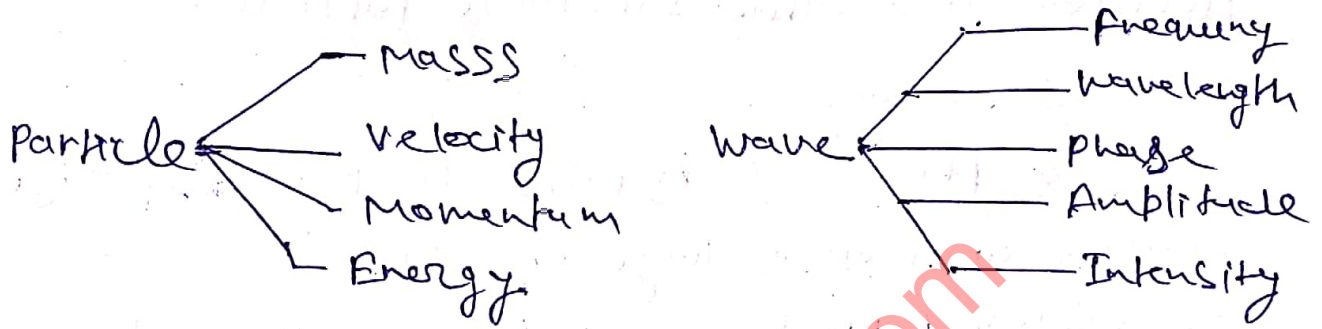 Particle
Masss
Velocity
Momentum
Energy
Wave
frequency
wavelength
phase
Amplitude
Intensity
om